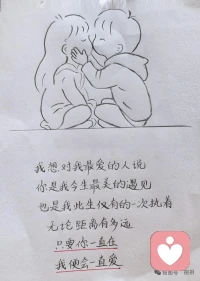 我想对我最爱的人说
你是我今生最美的遇见
也是我此生仅有的一次执着
无论距离有多远
只要你一直在
我便会一直爱